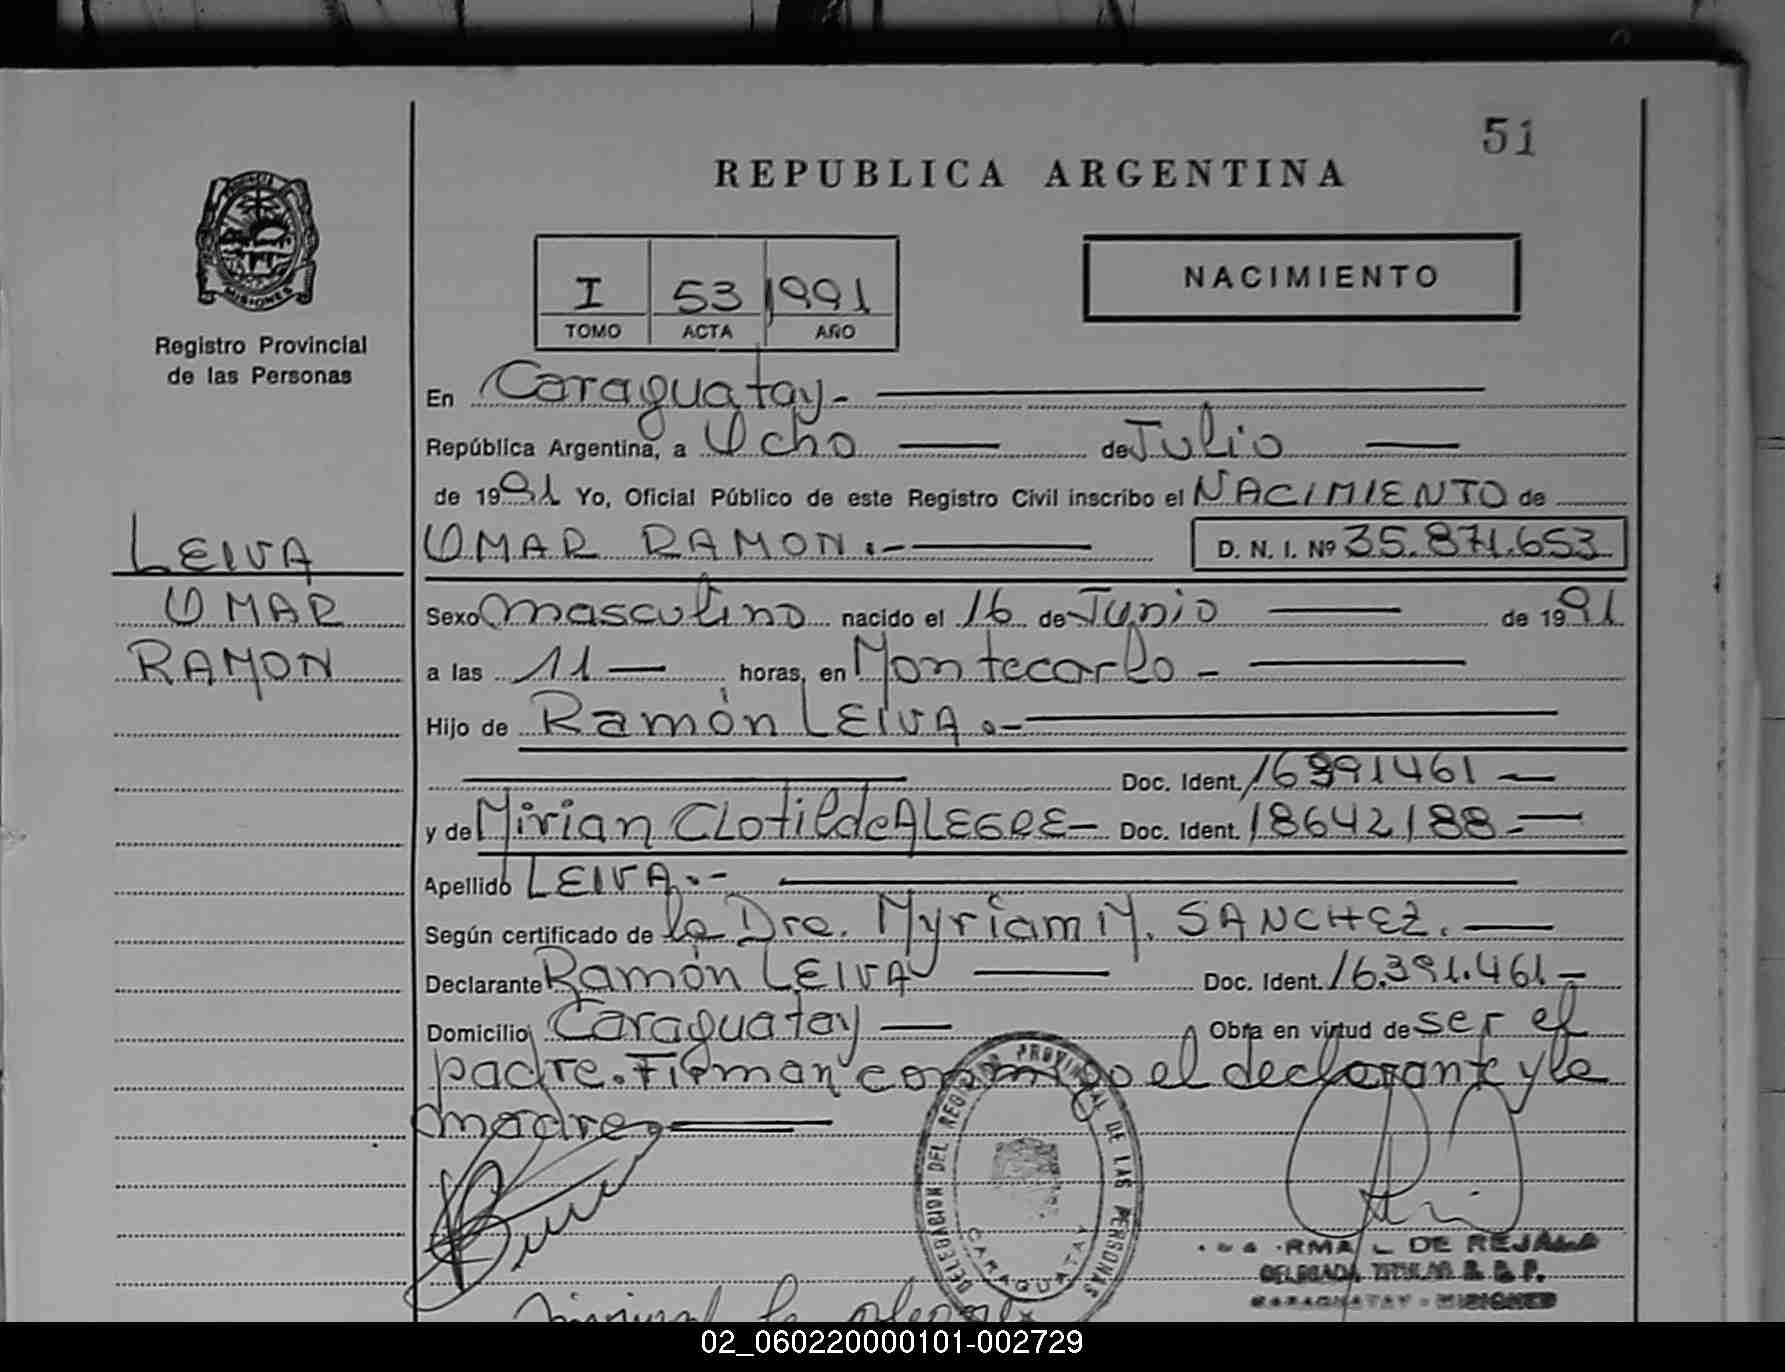 51
REPUBLICA ARGENTINA
I 53 1991
TOMO ACTA AÑO
NACIMIENTO
MISIONES
Registro Provincial
de las Personas
En Caraguatay.-
República Argentina, a Ocho de Julio
de 1991 Yo, Oficial Público de este Registro Civil inscribo el NACIMIENTO de
LEIVA
OMAR RAMON.- D. N. I. Nº 35.871.653
OMAR
RAMON
Sexo masculino nacido el 16 de Junio de 1991
a las 11 horas, en Montecarlo -
Hijo de Ramón LEIVA.-
Doc. Ident. 16391461
y de Mirian CLotilde ALEGRE - Doc. Ident. 18642188.-
Apellido LEIVA.-
Según certificado de la Dra. Myriam M. SANCHEZ.
Declarante Ramón LEIVA Doc. Ident. 16.391.461-
Domicilio Caraguatay Obra en virtud de ser el
padre. Firman conmigo el declarante y la
madre.
DELEGACION DEL REGISTRO PROVINCIAL DE LAS PERSONAS
CARAGUATAY
DE REJALA
DELEGADA TITULAR R. P. P.
CARAGUATAY - MISIONES
02_060220000101-002729